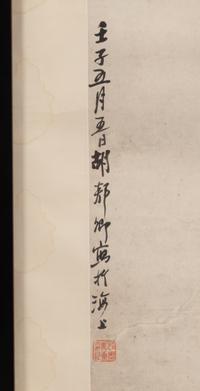 壬子五月五日胡郯卿寫於海上